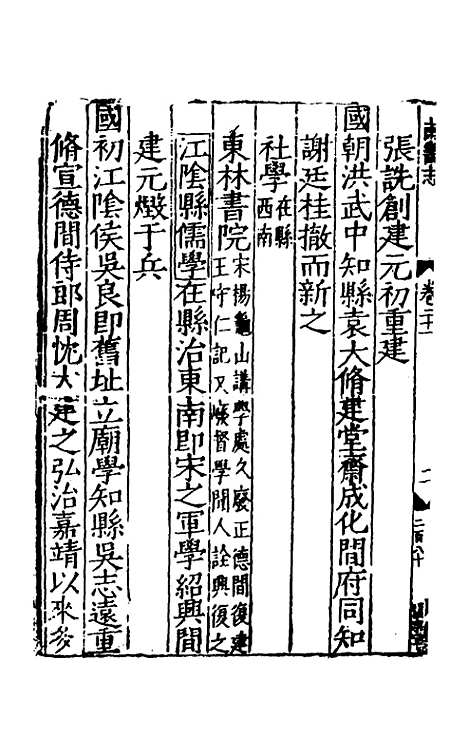 南畿志
卷二十一
張詵創建元初重建
國朝洪武中知縣袁大脩建堂齋成化間府同知
謝廷桂撤而新之
社學在縣西南
東林書院宋揚龜山講學處久廢正德間復建王守仁記又廢督學聞人詮興復之
江陰縣儒學在縣治東南即宋之軍學紹興間
建元燬于兵
國初江陰侯吳良即舊址立廟學知縣吳志遠重
脩宣德間侍郎周忱大建之弘治嘉靖以來多